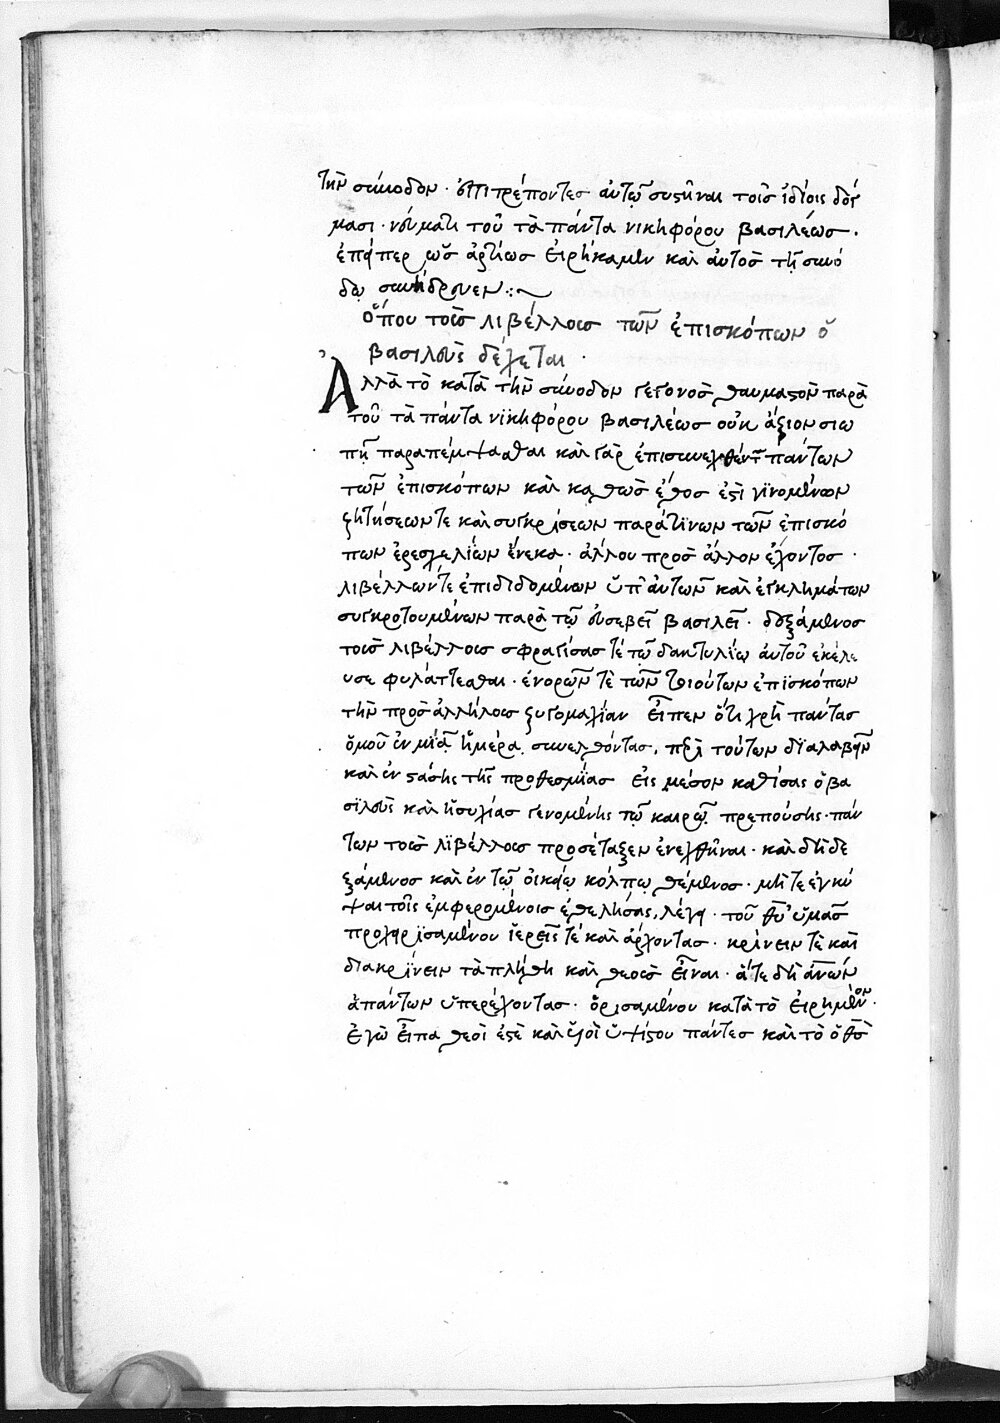 τὴν σύνοδον · ἐπιτρέποντες αὐτῷ συστῆναι τοῖς ἰδίοις δόγ
μασι · νεύματι τοῦ τὰ πάντα νικηφόρου βασιλέως ·
ἐπείπερ ὡς ἀρτίως εἰρήκαμεν καὶ αὐτὸς τῇ συνό
δῳ συνήδρευεν :~
ὅπου τοὺς λιβέλλους τῶν ἐπισκόπων ὁ
βασιλεὺς δέχεται ·
Ἀλλὰ τὸ κατὰ τὴν σύνοδον γεγονὸς θαυμαστὸν παρὰ
τοῦ τὰ πάντα νϊκηφόρου βασιλέως οὐκ ἄξιον σιω
πῇ παραπέμψασθαι καὶ γὰρ ἐπισυνελθόντων πάντων
τῶν ἐπισκόπων καὶ καθὼς ἔθος ἐστὶ γϊνομένων
ζητήσεων τε καὶ συγκρίσεων παρά τϊνων τῶν ἐπισκό
πων ἐρεσχελϊῶν ἕνεκα · ἄλλου πρὸς ἄλλον ἔχοντος ·
λιβέλλων τε ἐπιδιδομένων ὑπ' αὐτῶν καὶ ἐγκλημάτων
συγκροτουμένων παρὰ τῷ εὐσεβεῖ βασιλεῖ · δεξάμενος
τοὺς λιβέλλους σφραγίσας τὲ τῷ δακτυλίῳ αὐτοῦ ἐκέλε
υσε φυλάττεσθαι · ἐνορῶν τὲ τῶν τοιούτων ἐπϊσκόπων
τὴν πρὸς ἀλλήλους ζυγομαχίαν εἶπεν ὅτι χρὴ πάντας
ὁμοῦ ἐν μϊᾷ ἡμέρᾳ συνελθόντας, περὶ τούτων δϊαλαβεῖν
καὶ ἐν στάσης τῆς προθεσμίας εἰς μέσον καθίσας ὁ βα
σϊλεὺς καὶ ἡσυχίας γενομένης τῷ καιρῷ πρεπούσης · πάν
των τοὺς λϊβέλλους προσέταξεν ἐνεχθῆναι · καὶ δὴ δε
ξάμενος καὶ ἐν τῷ οἰκείῳ κόλπῳ θέμενος · μήτε ἐγκύ
ψαι τοῖς ἐμφερομένοις ἐθελήσας, λέγει · τοῦ θῦ ὑμᾶς
προχειρϊσαμένου ἱερεῖς τέ καὶ ἄρχοντας · κρίνειν τὲ καὶ
διακρίνειν τὰ πλήθη καὶ θεοὺς εἶναι · ἅτε δὴ ἀνῶν
ἁπάντων ὑπερέχοντας · ὁρισαμένου κατὰ τὸ εἰρημένον ·
ἐγὼ εἶπα θεοί ἐστὲ καὶ ὑϊοὶ ὑψίστου πάντες καὶ τὸ θεοὺς